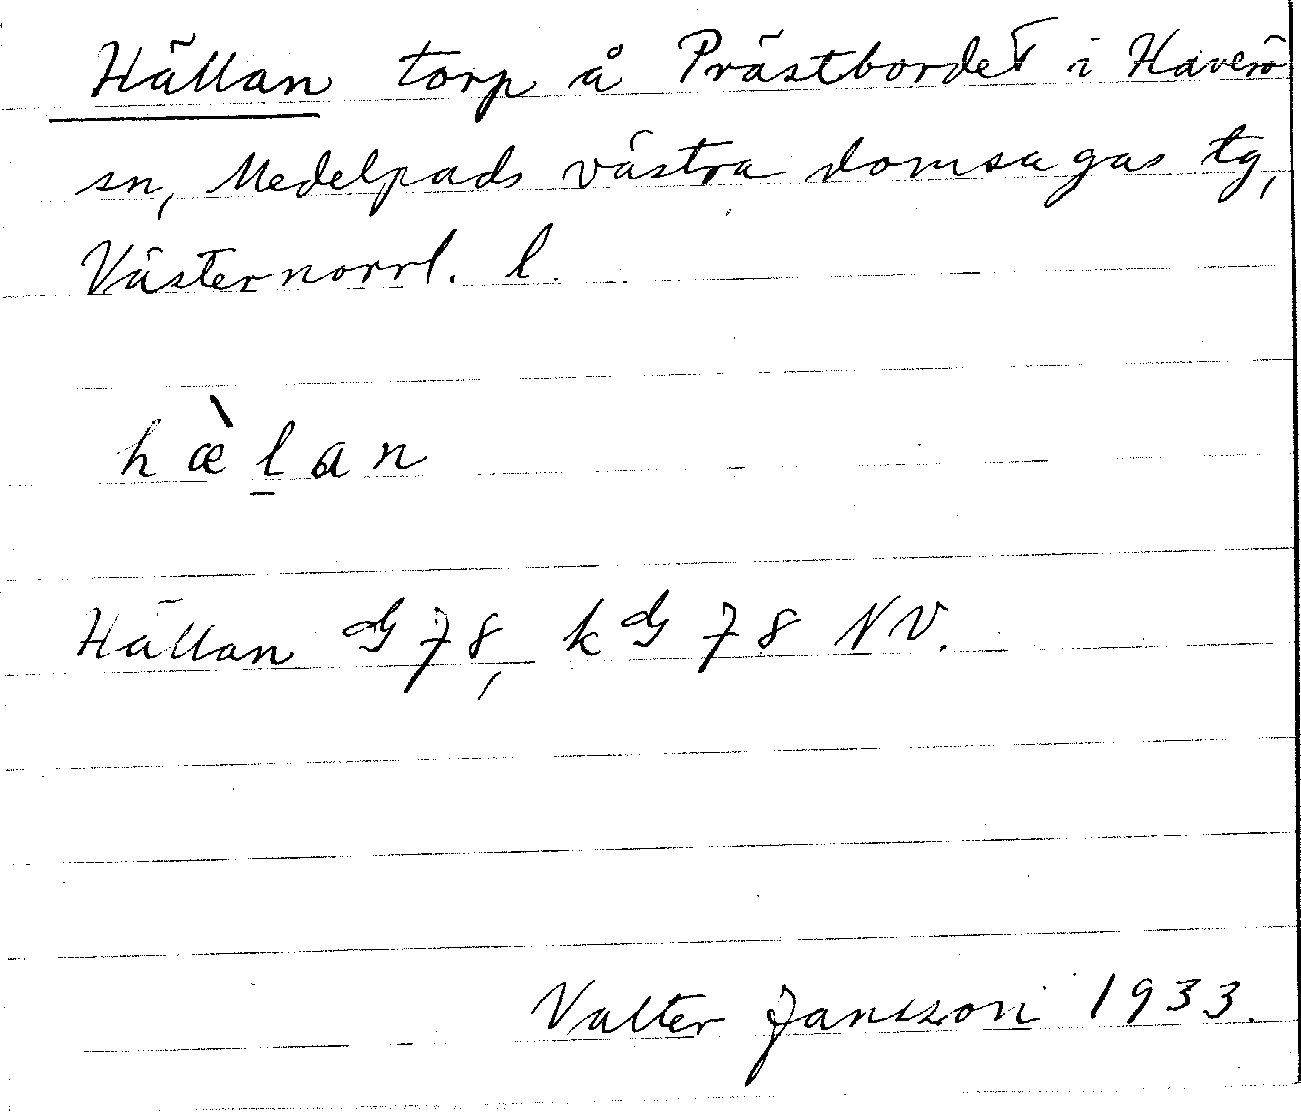 Hällan torp å Prästbordet i Haverö
sn, Medelpads västra domsagas tg,
Västernorrl. l.
hæ̀ḻan
Hällan G 78, kG 78 NV.
Valter Jansson 1933.